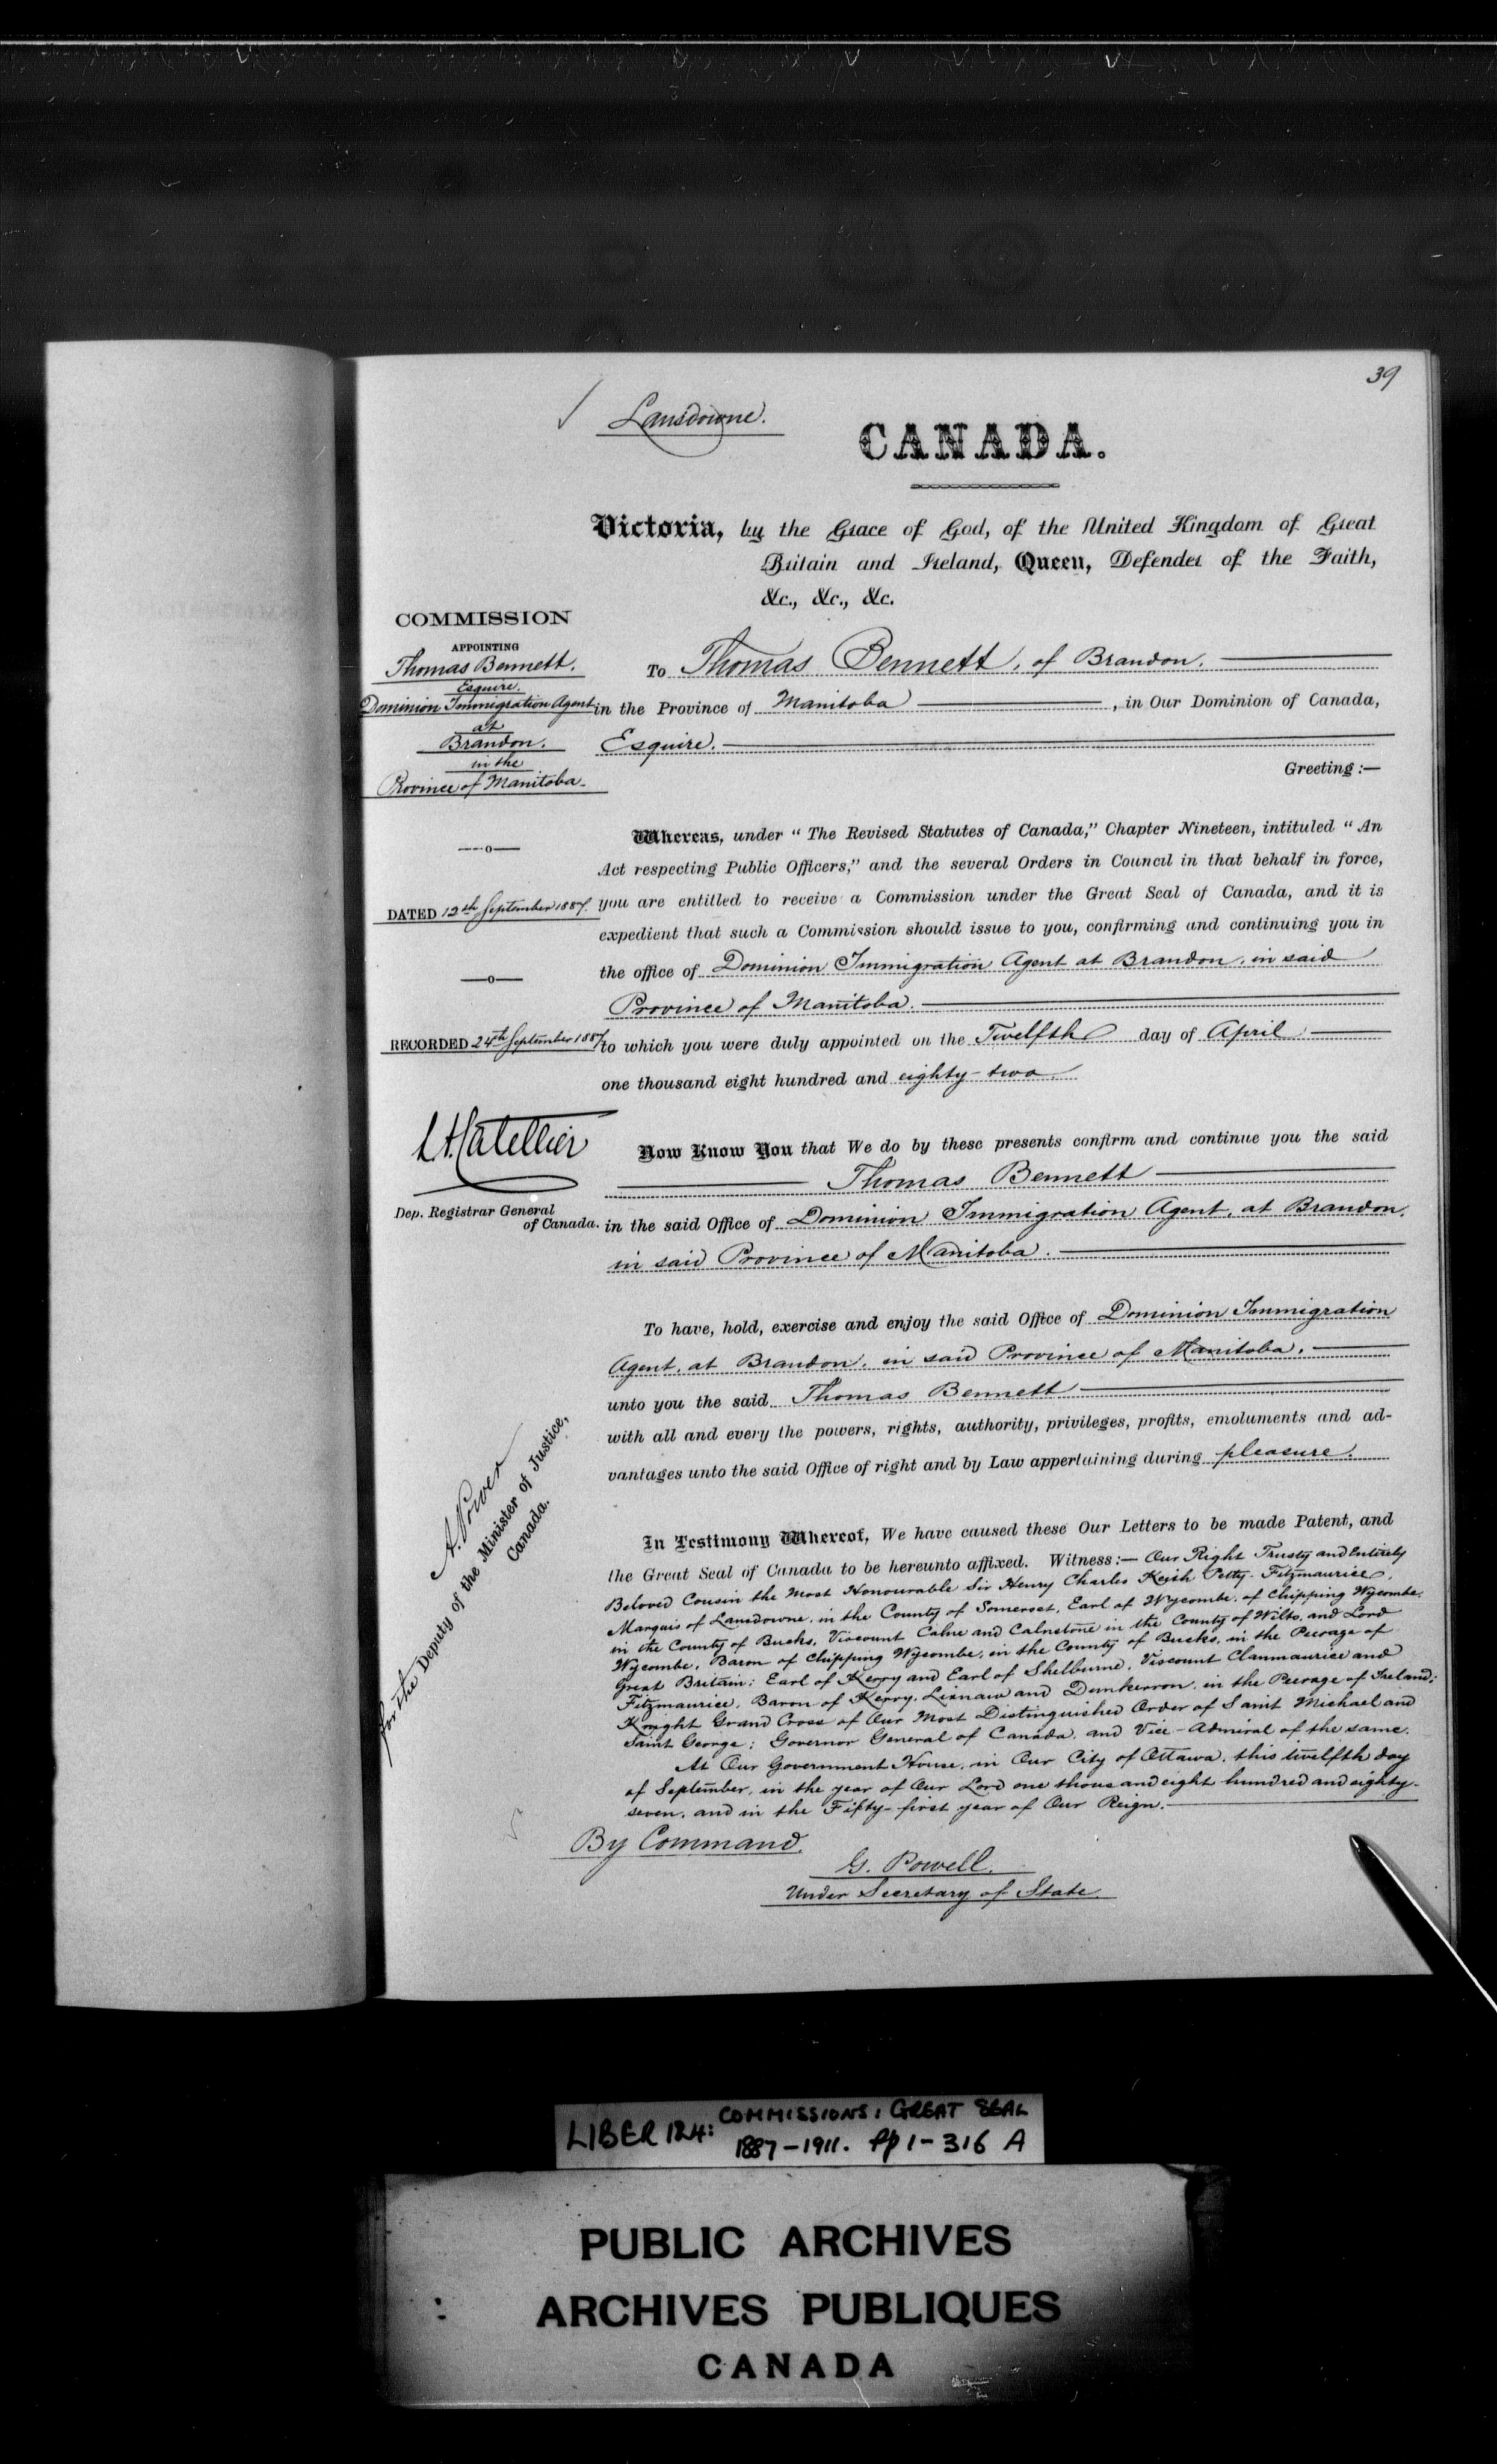 39
Lansdowne.
CANADA.
Victoria, by the Grace of God, of the United Kingdom of Great
Britain and Ireland, Queen, Defender of the Faith,
&c., &c., &c.
COMMISSION
APPOINTING
Thomas Bennett.
Esquire.
Dominion Immigration Agent
at
Brandon.
in the
Province of Manitoba.
—o—
DATED 12th September 1887.
—o—
RECORDED 24th September 1887
L.A. Catellier
Dep. Registrar General
of Canada.
A. Power
For the Deputy of the Minister of Justice,
Canada.
To Thomas Bennett, of Brandon.
in the Province of Manitoba, in Our Dominion of Canada,
Esquire.
Greeting :—
Whereas, under “ The Revised Statutes of Canada,” Chapter Nineteen, intituled “ An
Act respecting Public Officers,” and the several Orders in Council in that behalf in force,
you are entitled to receive a Commission under the Great Seal of Canada, and it is
expedient that such a Commission should issue to you, confirming and continuing you in
the office of Dominion Immigration Agent at Brandon, in said
Province of Manitoba.
to which you were duly appointed on the Twelfth day of April
one thousand eight hundred and eighty-two
Now Know You that We do by these presents confirm and continue you the said
Thomas Bennett
in the said Office of Dominion Immigration Agent, at Brandon,
in said Province of Manitoba.
To have, hold, exercise and enjoy the said Office of Dominion Immigration
Agent, at Brandon, in said Province of Manitoba.
unto you the said Thomas Bennett
with all and every the powers, rights, authority, privileges, profits, emoluments and ad-
vantages unto the said Office of right and by Law appertaining during pleasure.
In Testimony Whereof, We have caused these Our Letters to be made Patent, and
the Great Seal of Canada to be hereunto affixed. Witness:— Our Right Trusty and Entirely
Beloved Cousin the Most Honourable Sir Henry Charles Keith Petty-Fitzmaurice,
Marquis of Lansdowne, in the County of Somerset, Earl of Wycombe, of Chipping Wycombe,
in the County of Bucks, Viscount Calne and Calnstone in the County of Wilts, and Lord
Wycombe, Baron of Chipping Wycombe, in the County of Bucks, in the Peerage of
Great Britain; Earl of Kerry and Earl of Shelburne, Viscount Clanmaurice and
Fitzmaurice, Baron of Kerry, Lixnaw and Dunkerron, in the Peerage of Ireland;
Knight Grand Cross of Our Most Distinguished Order of Saint Michael and
Saint George; Governor General of Canada, and Vice-Admiral of the same.
At Our Government House, in Our City of Ottawa, this twelfth day
of September, in the year of Our Lord one thousand eight hundred and eighty-
seven, and in the Fifty-first year of Our Reign.
By Command.
G. Powell.
Under Secretary of State.
LIBER 124: COMMISSIONS: GREAT SEAL
1887-1911. pp 1-316 A
PUBLIC ARCHIVES
ARCHIVES PUBLIQUES
CANADA